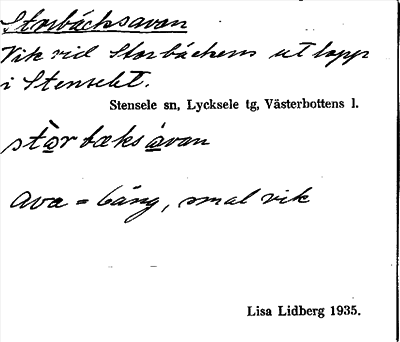 Storbäcksavan
Vik vid Storbäckens utlopp
i Stenselet.
Stensele sn, Lycksele tg, Västerbottens l.
stòrbæksavan
Ava = lång, smal vik
Lisa Lidberg 1935.